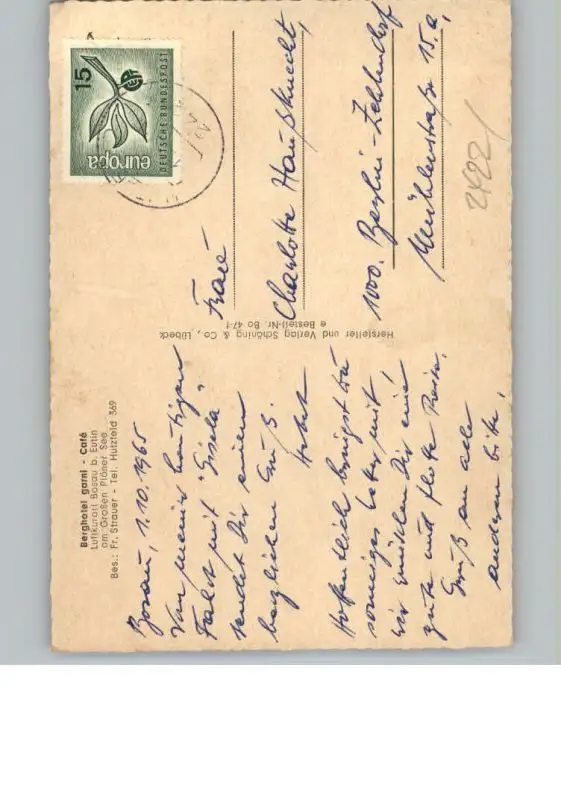 Berghotel garni - Café
Luftkurort Bosau b. Eutin
am Großen Plöner See
Bes.: Fr. Strauer - Tel. Hutzfeld 369
Bosau, 1.10.1965
Von meiner heutigen
Fahrt mit "Gisela"
sendet Dir einen
herzlichen Gruß.
Hoffentlich bringst Du
sonniges mit,
wir wünschen Dir eine
gute und flotte Reise.
Gruß an alle
anderen bitte,
Hersteller und Verlag Schöning & Co., Lübeck
e Bestell-Nr. Bo 47-1
europa
DEUTSCHE BUNDESPOST
15
Frau
Charlotte Haußknecht,
1000. Berlin-Zehlendorf
Mühlenstraße 15.a,